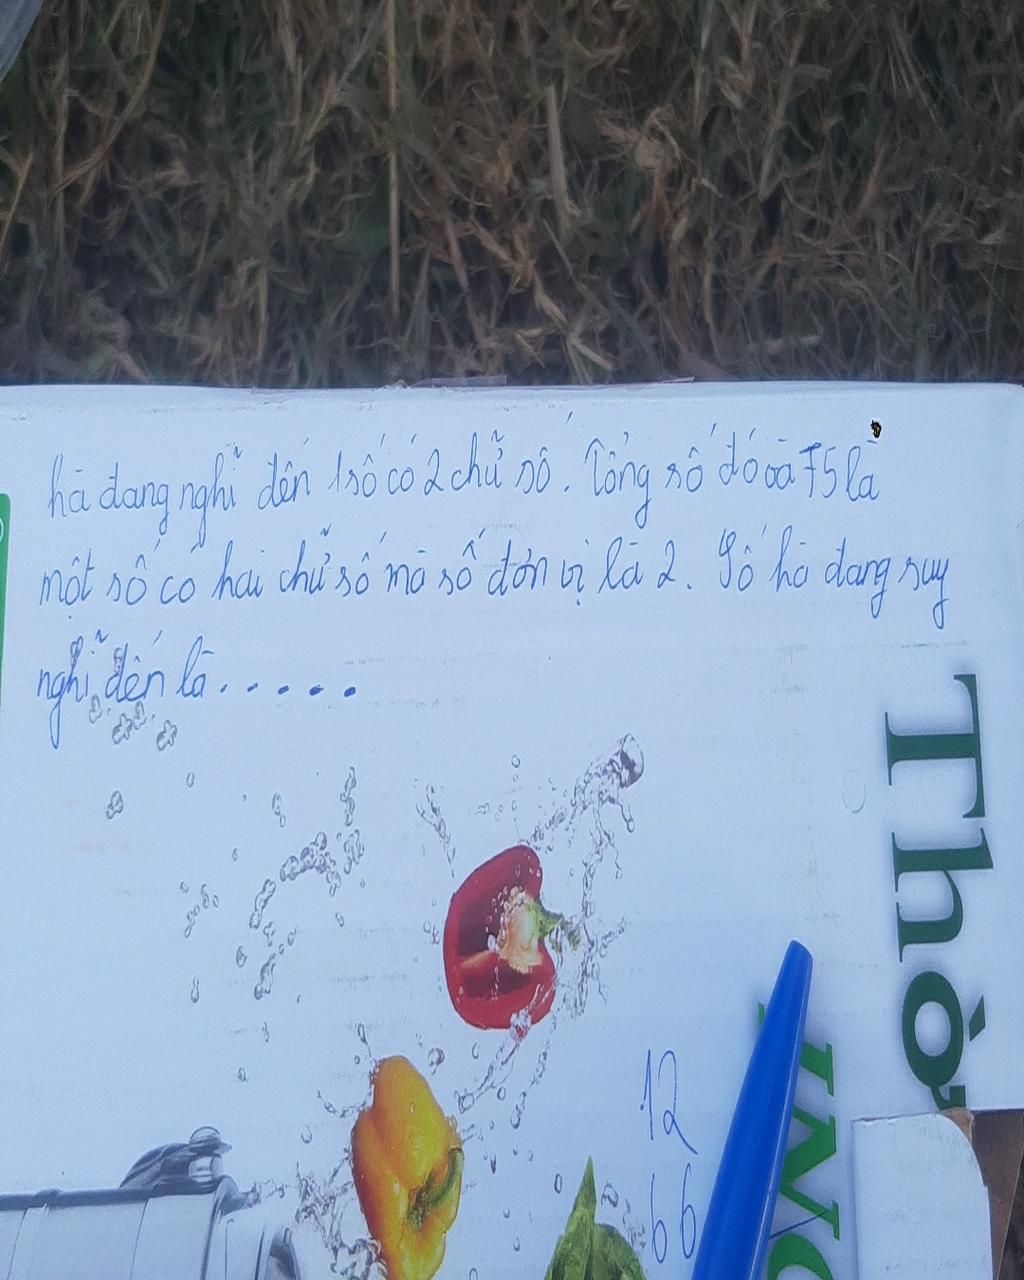 hà đang nghĩ đến 1 số có 2 chữ số. Tổng số đó và 75 là
một số có hai chữ số mà số đơn vị là 2. Số hà đang suy
nghĩ đến là.....
Thở
12
66